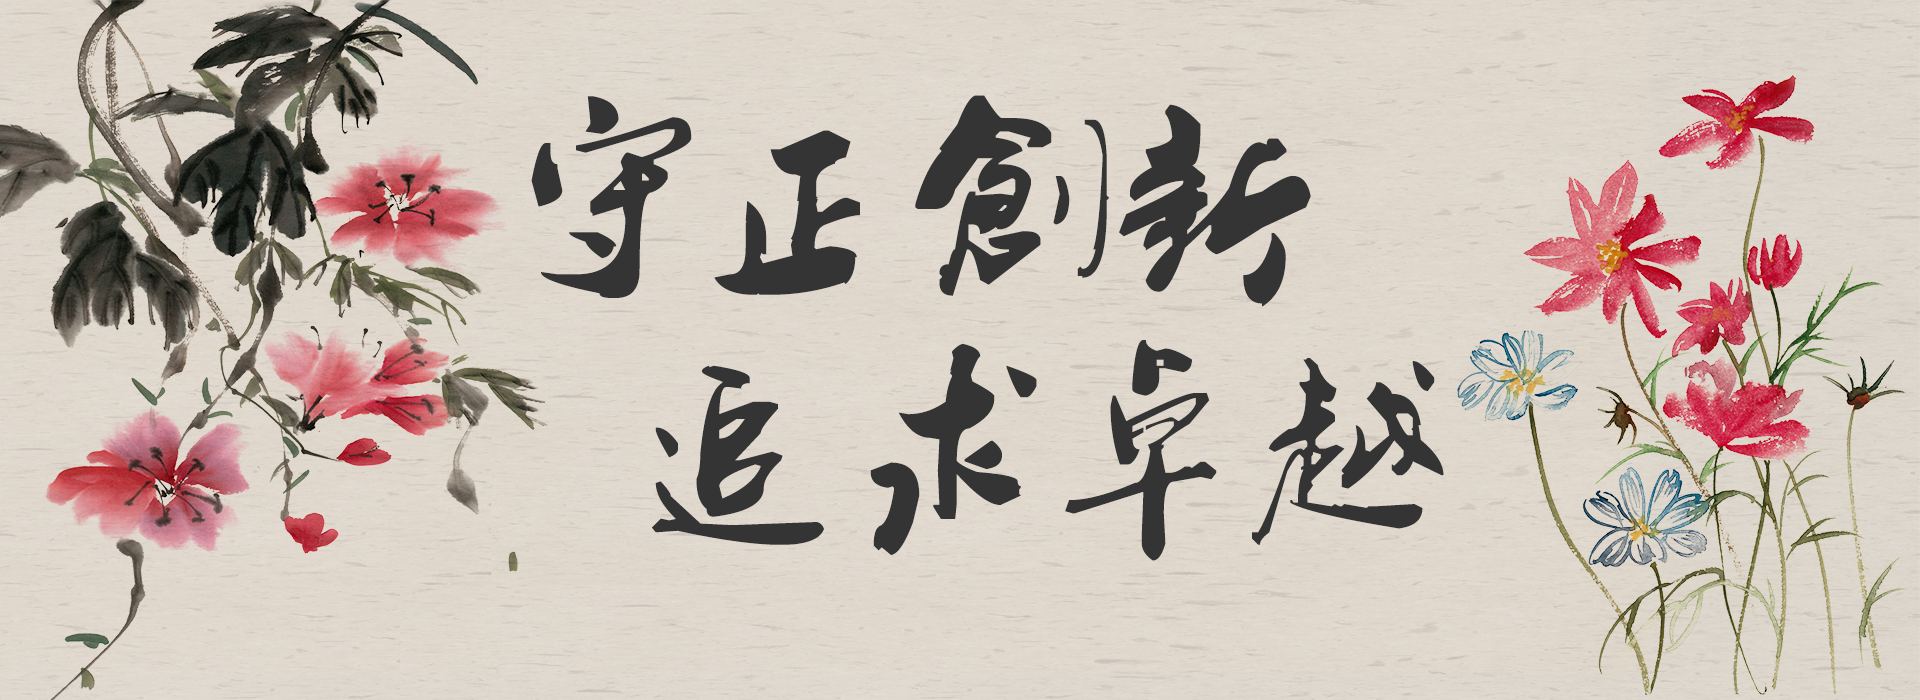 守正創新
追求卓越